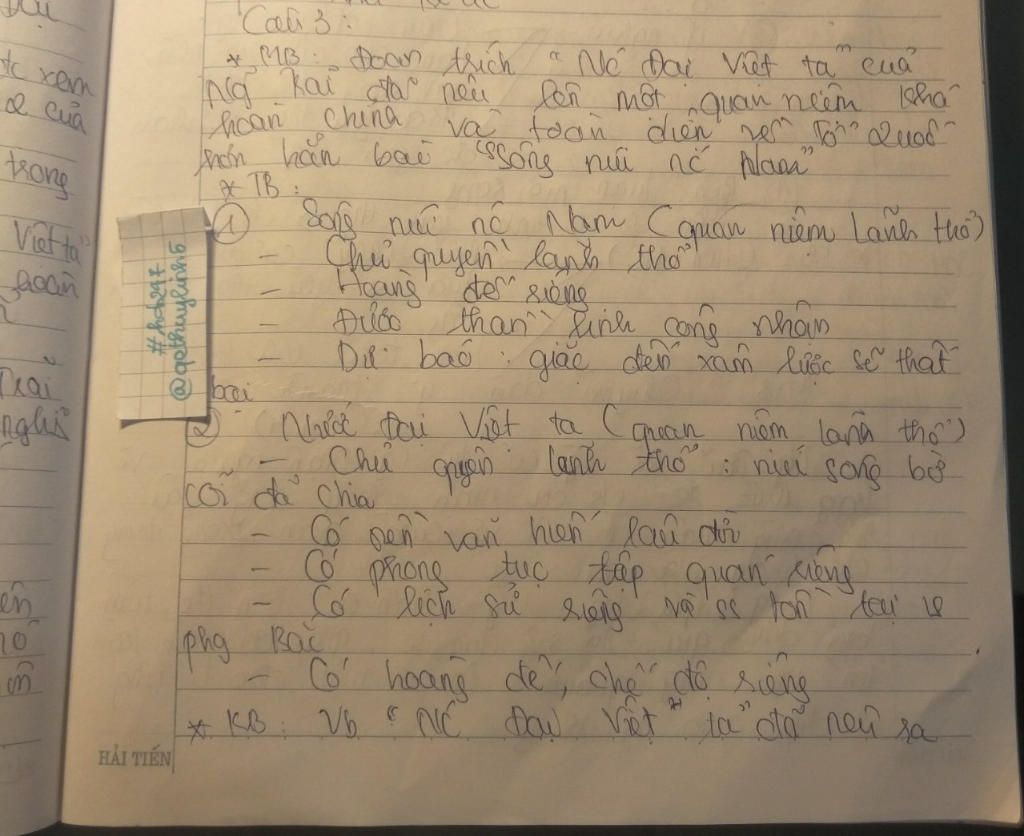 Câu 3:
* MB: Đoạn trích "Nc Đại Việt ta" của
Ng Trãi đã nêu lên một quan niệm khá
hoàn chỉnh và toàn diện về Tổ Quốc
hơn hẳn bài "Sông núi nc Nam"
* TB:
① Sông núi nc Nam (quan niệm lãnh thổ)
- Chủ quyền lãnh thổ
- Hoàng đế riêng
- Được thần linh công nhận
- Dự báo: giặc đến xâm lược sẽ thất
bại
② Nước Đại Việt ta (quan niệm lãnh thổ)
- Chủ quyền lãnh thổ: núi sông bờ
cõi đã chia
- Có nền văn hiến lâu đời
- Có phong tục tập quán riêng
- Có lịch sử riêng và ss tồn tại vs
phg Bắc
- Có hoàng đế, chế độ riêng
* KB: Vb "Nc Đại Việt" ta đã nêu ra
HẢI TIẾN
#hoh247
xem
của
trong
Việt ta"
hoàn
Trãi
nghĩ